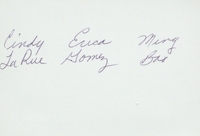 Cindy Erica Ming
LaRue Gomez Bao